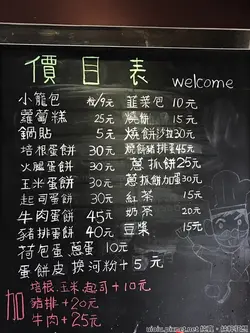 價目表 welcome
小籠包 粒/9元 韮菜包 10元
蘿蔔糕 25元 燒餅 15元
鍋貼 5元 燒餅沙拉30元
培根蛋餅 30元 燒餅豬排蛋45元
火腿蛋餅 30元 蔥抓餅25元
玉米蛋餅 30元 蔥抓餅加蛋30元
起司蛋餅 30元 紅茶 15元
牛肉蛋餅 45元 奶茶 20元
豬排蛋餅 40元 豆漿 15元
荷包蛋、蔥蛋 10元
蛋餅皮換河粉+5元
加 培根、玉米起司+10元
豬排+20元
牛肉+25元